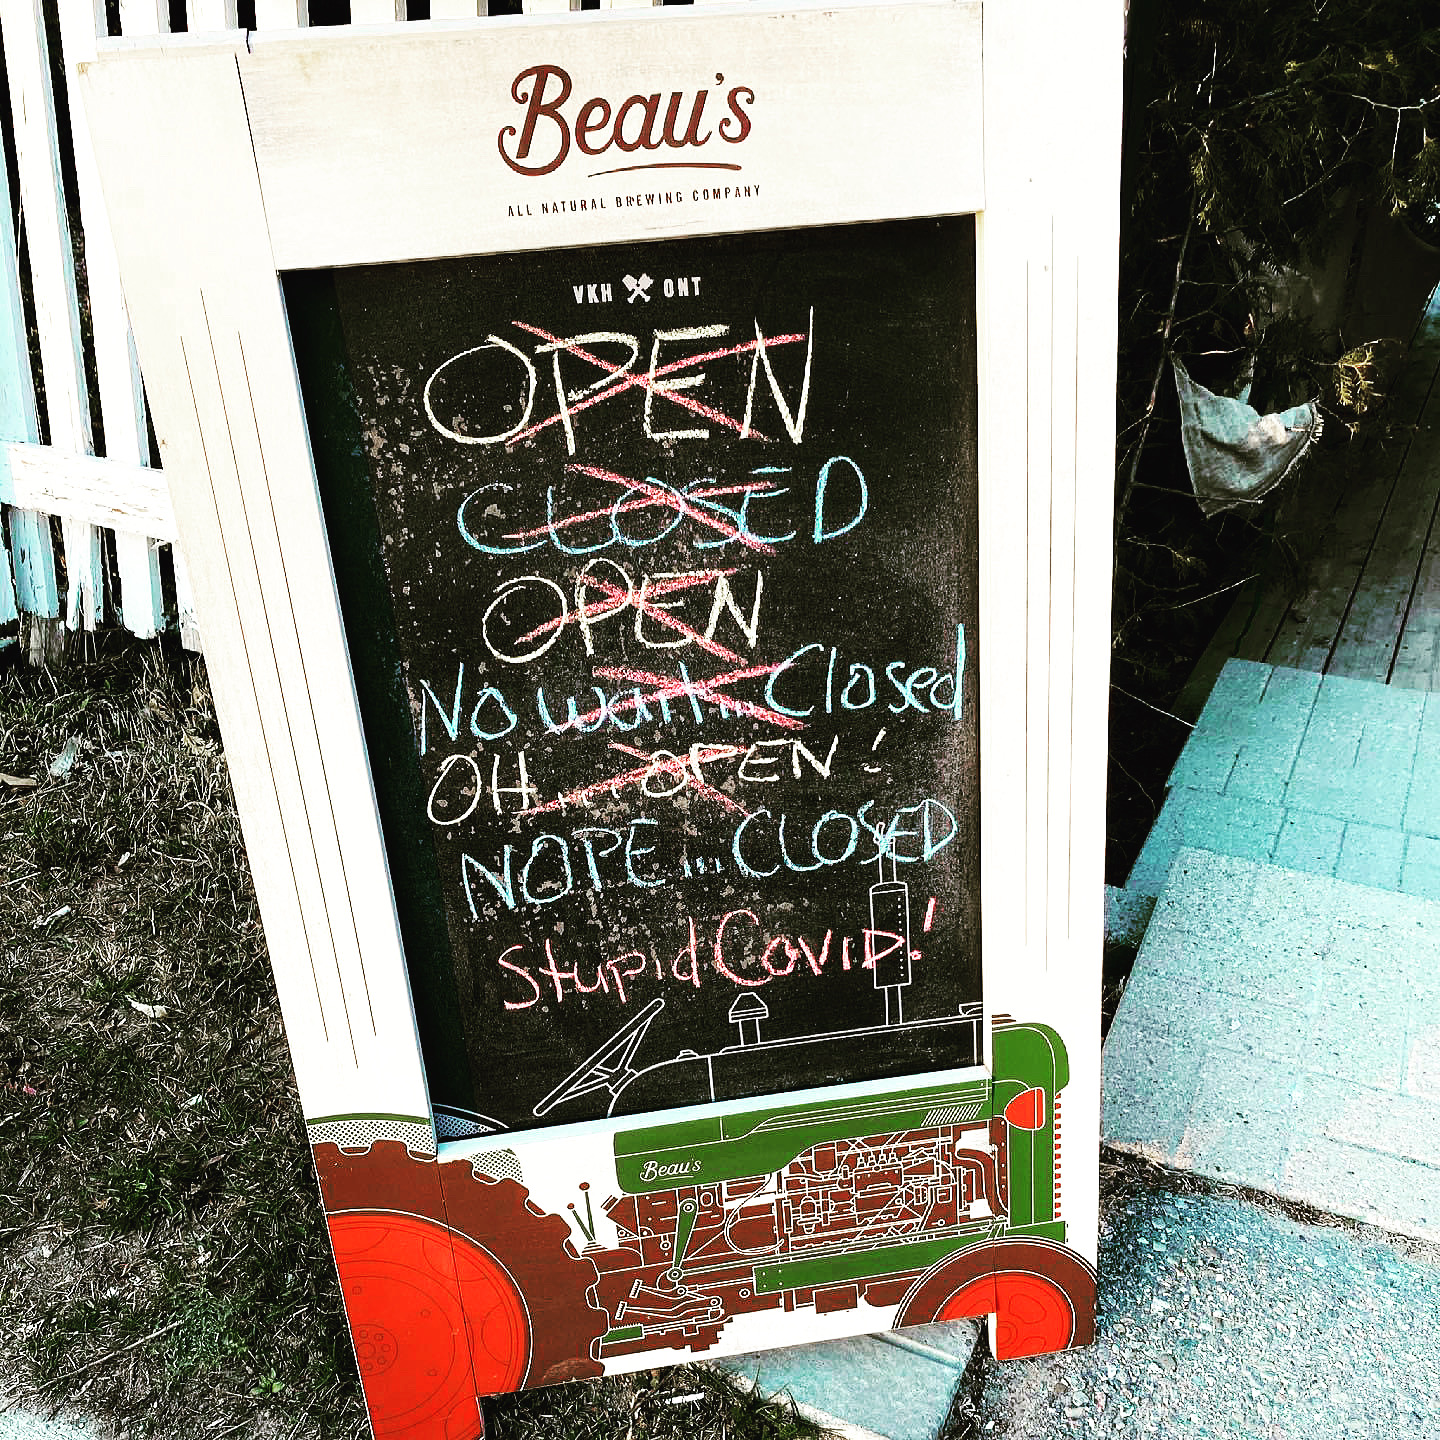 Beau's
ALL NATURAL BREWING COMPANY
VKH ONT
OPEN
CLOSED
OPEN
No wait... Closed
OH.... OPEN!
NOPE...CLOSED
Stupid Covid!
Beau's